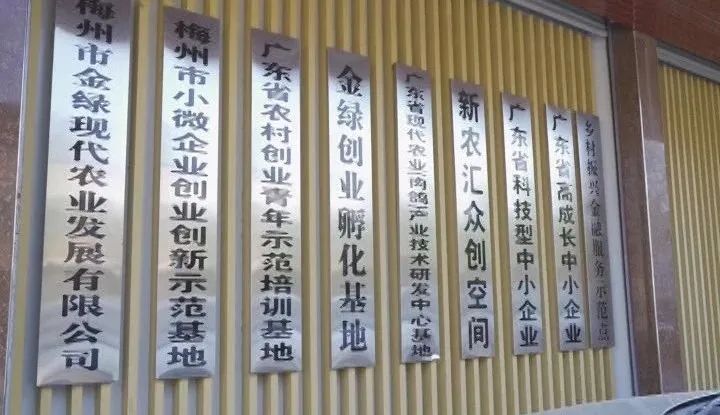 梅州市金绿现代农业发展有限公司
梅州市小微企业创业创新示范基地
广东省农村创业青年示范培训基地
金绿创业孵化基地
广东省现代农业(肉鸽)产业技术研发中心基地
新农汇众创空间
广东省科技型中小企业
广东省高成长中小企业
乡村振兴金融服务示范点